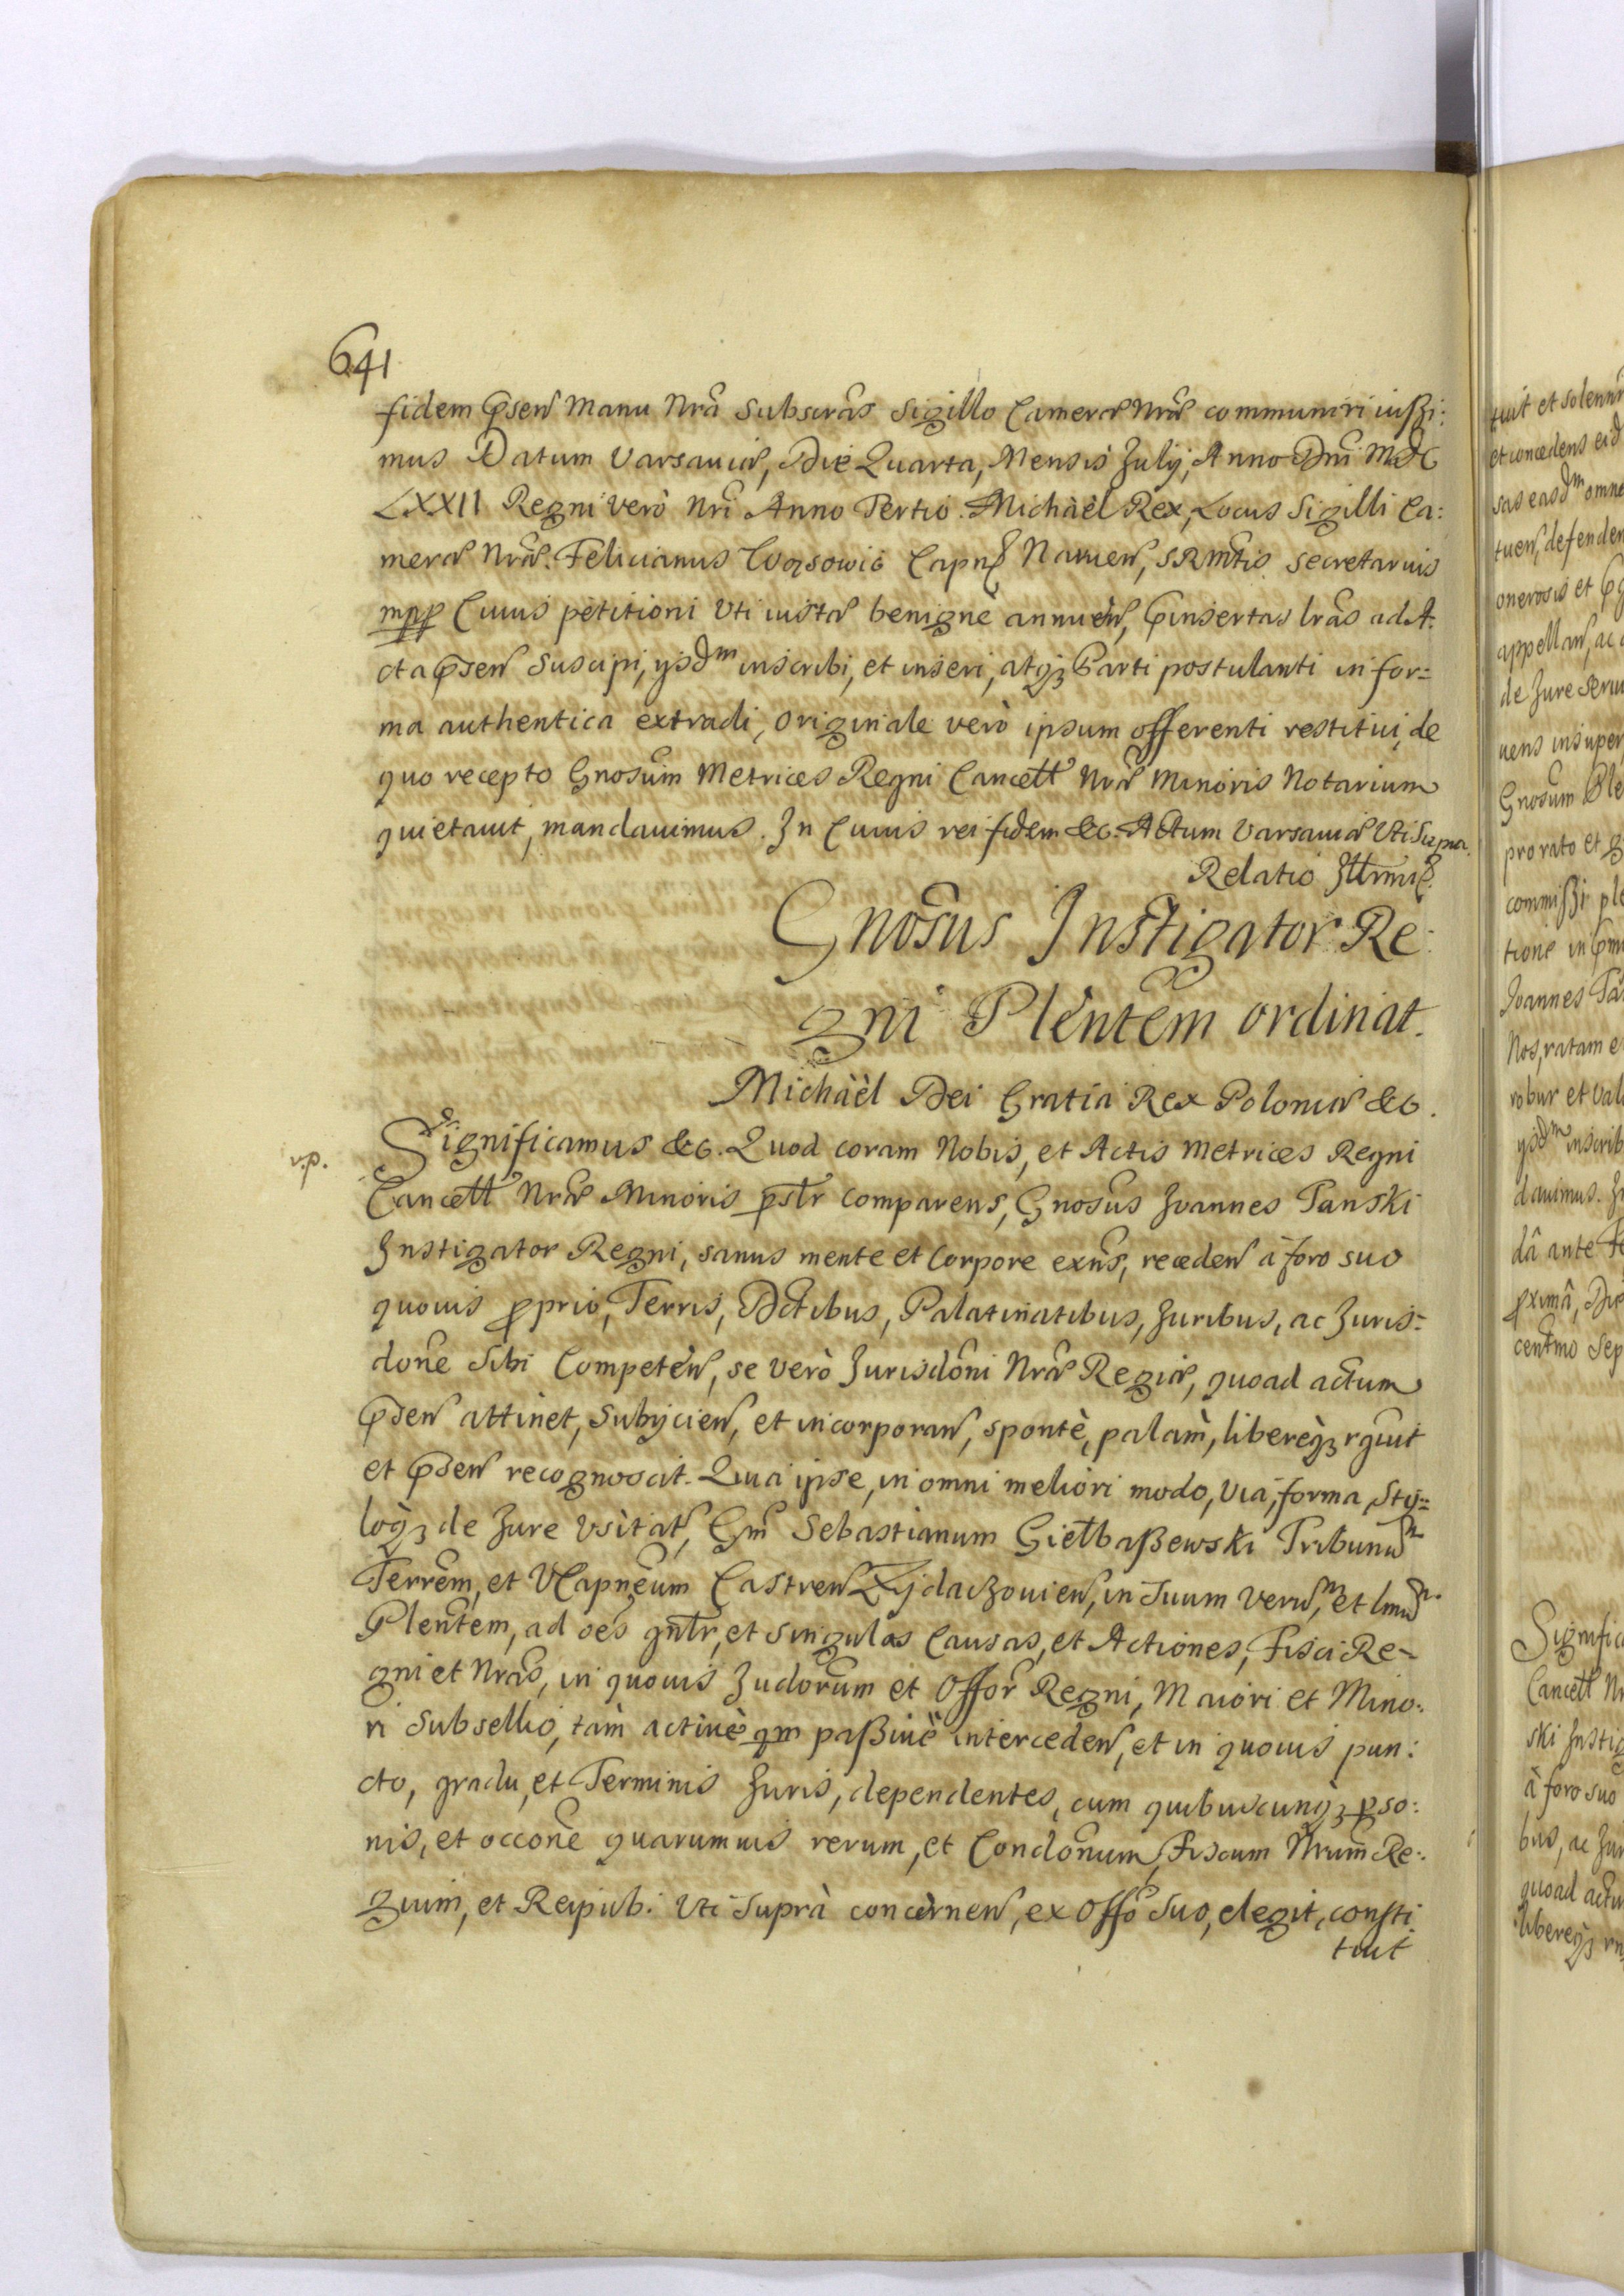 641
fidem p̄sen manu Nrâ Subscrâs Sigillo Cameræ Nræ communiri iußi:
mus Datum Varsaviæ, Die Quarta, Mensis July, Anno Dni MDC
LXXII Regni verò Nri Anno Tertio. Michàèl Rex, Locus Sigilli Ca:
meræ Nræ. Felicianus Capn SRMtis Secretarius
mpp Cuius petitioni Vti iustæ benignè annuen, p̄insertas lrâs ad A:
cta p̄sen Suscipi, ysdm inscribi, et inseri, atqʒ Parti postulanti in for:
ma authentica extradi, Originale verò ipsum offerenti restitui, de
quo recepto Gnosum Metrices Regni Cancell Nræ Minoris Notarium
quietavit, mandavimus. In Cuius rei fidem &c. Actum Varsaviæ Vti Supra.
Relatio Illrmi
Gnosus Instigator Re:
gni Plentem ordinat.
Michàèl Dei Gratia Rex Poloniæ &c.
v.p.
Significamus &c. Quod coram Nobis, et Actis Metrices Regni
Cancell Nræ Minoris pslr comparens, Gnosus Joannes Tanski
Instigator Regni, sanus mente et Corpore exns, receden à foro suo
quovis proprio, Terris, Dctibus, Palatinatibus, Juribus, ac Juris:
done Sibi Competen, se verò Jurisdoni Nræ Regiæ, quoad actum
p̄sen attinet, Subijcien, et incorporan, spontè, palàm, liberèqʒ rguit
et p̄sen recognoscit. Quia ipse, in omni meliori modo, via, forma, Sty:
lòqʒ de Jure Vsitat, Gm Sebastianum Giełbaßewski Tribunum
Terrem, et VCapneum Castren Zydaczovien, in Suum verum, et lmum
Plentem, ad oes gnlr, et Singulas Causas, et Actiones, Fisci Re-
gni et Nras, in quovis Judorum et Offor Regni, Maiori et Mino:
ri Subsellio, tàm activè qm paßivè interceden, et in quovis pun:
cto, gradu, et Terminis Juris, dependentes, cum quibuscunqʒ perso:
nis, et occone quarumvis rerum, et Condonum, Fiscum Nrum Re:
gium, et Reipub. Vti Suprà concernen, ex Offo Suo, elegit, consti
tuit